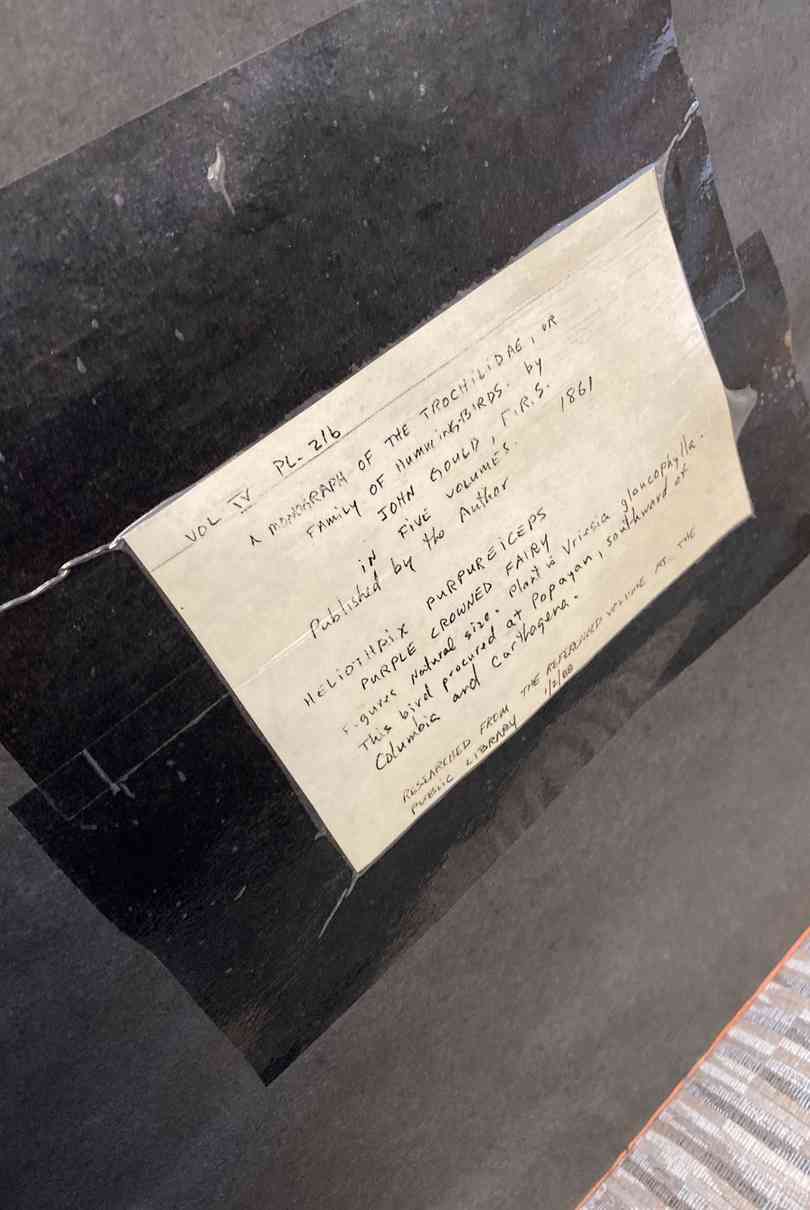 VOL IV PL. 216
A MONOGRAPH OF THE TROCHILIDAE, OR
FAMILY OF HUMMING-BIRDS. by
JOHN GOULD, F.R.S.
IN FIVE VOLUMES. 1861
Published by the Author
HELIOTHRIX PURPUREICEPS
PURPLE CROWNED FAIRY
Figures Natural size. Plant is Vriesia glaucophylla.
This bird procured at Popayan, southward of
Columbia and Carthogena.
RESEARCHED FROM THE REFERENCED VOLUME AT THE
PUBLIC LIBRARY 1/2/88